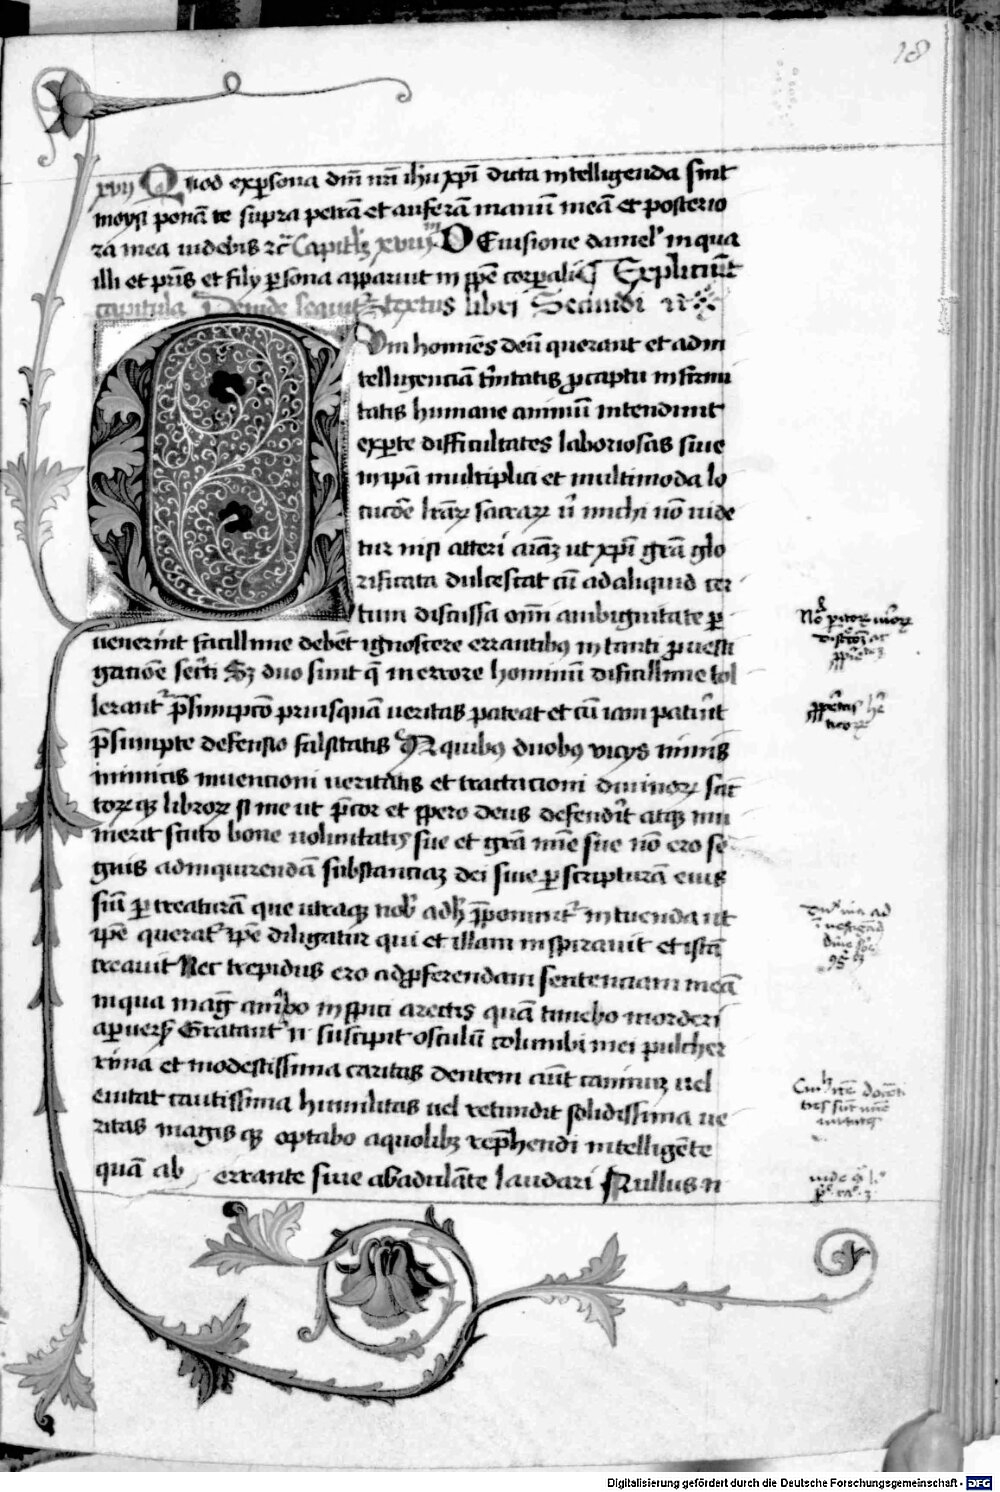 18
xvij Quod ex p̱sona dn̄i nr̄i ihu xp̄i dicta intelligenda sint
moysi ponā te supra petrā et auferā manū meā et posterio
ra mea uidebis rc̄ Capitlꝫ xviijm De uisione daniel' in qua
illi et pr̄is et filij p̱sona apparuit in sp̄e corp̱ali Expliciūt
capitula Deinde sequit᷑ textus libri Secundi
Cum homines deū querant et ad in
telligenciā t'nitatis p̱ captu infirmi
tatis humane animū intendunt
exp̱te difficultates laboriosas siue
in ip̄a multiplici et multimoda lo
cucōe lr̄aꝝ sacraꝝ n̄ michi nō uide
tur nisi atteri aīaꝫ ut xp̄i grā glo
rificata dulcescat cū ad aliquid cer
tum discussa om̄i ambiguitate p̱
uenerint facillime debēt ignoscere errantibꝰ in tanti p̱uesti
gatiōe secr̄ti Sꝫ duo sunt q̄ in errore hominū difficillime tol
lerant᷑ p̄sumpcō priusquā ueritas pateat et cū iam patu'it
p̄sumpte defensio falsitatis A quibꝰ duobꝰ vicijs nimis
inimicis inuencioni ueritatis et tractacioni diuinoꝝ sāc
toꝝ qꝫ libroꝝ si me ut p̄cor et sp̱ero deus defend'it atqꝫ mu
nierit scuto bone uoluntatis sue et grā mīe sue nō ero se
gnis ad inquirendā substanciaꝫ dei siue p̱ scripturā eius
siue p̱ creaturā que utraqꝫ nob' adhꝫ p̄ponunt᷑ intuenda ut
ip̄e querat᷑ ip̄e diligatur qui et illam inspirauit et istā
creauit Nec trepidus ero ad p̱ferendam sentenciam meā
in qua maḡ amabo inspici a rectis quā timebo morderi
a p̱uersꝫ Gratant᷑ n̄ suscipit osculū columbi mei pulcher
rima et modestissima caritas dentem aūt caninuꝫ uel
euitat cautissima humilitas uel retundit solidissima ue
ritas magis qꝫ optabo a quolibꝫ rep̄hendi intelligēte
quā ab errante siue ab adulāte laudari Nullus n̄
Digitalisierung gefördert durch die Deutsche Forschungsgemeinschaft - DFG